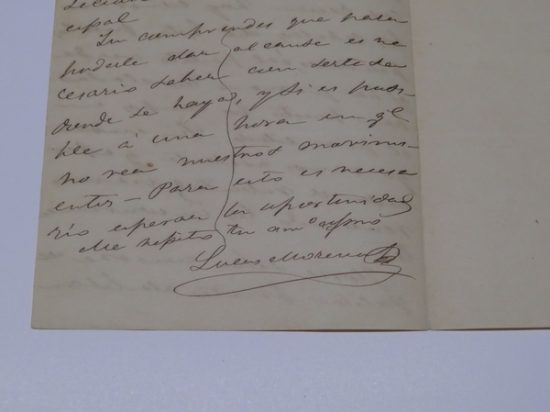 cipal
Tu comprendes que para
poderle dar alcanse es ne
cesario saber con serteza
donde se haya, y si es posi-
ble á una hora en q.e
no vea nuestros movimi-
entos — Para esto es necesa
rio esperar la oportunidad
Me repito tu am.o affmo
Lucas Moreno